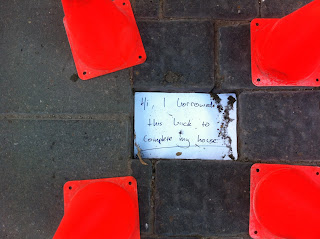 Hi, I borrowed
this brick to
complete my house